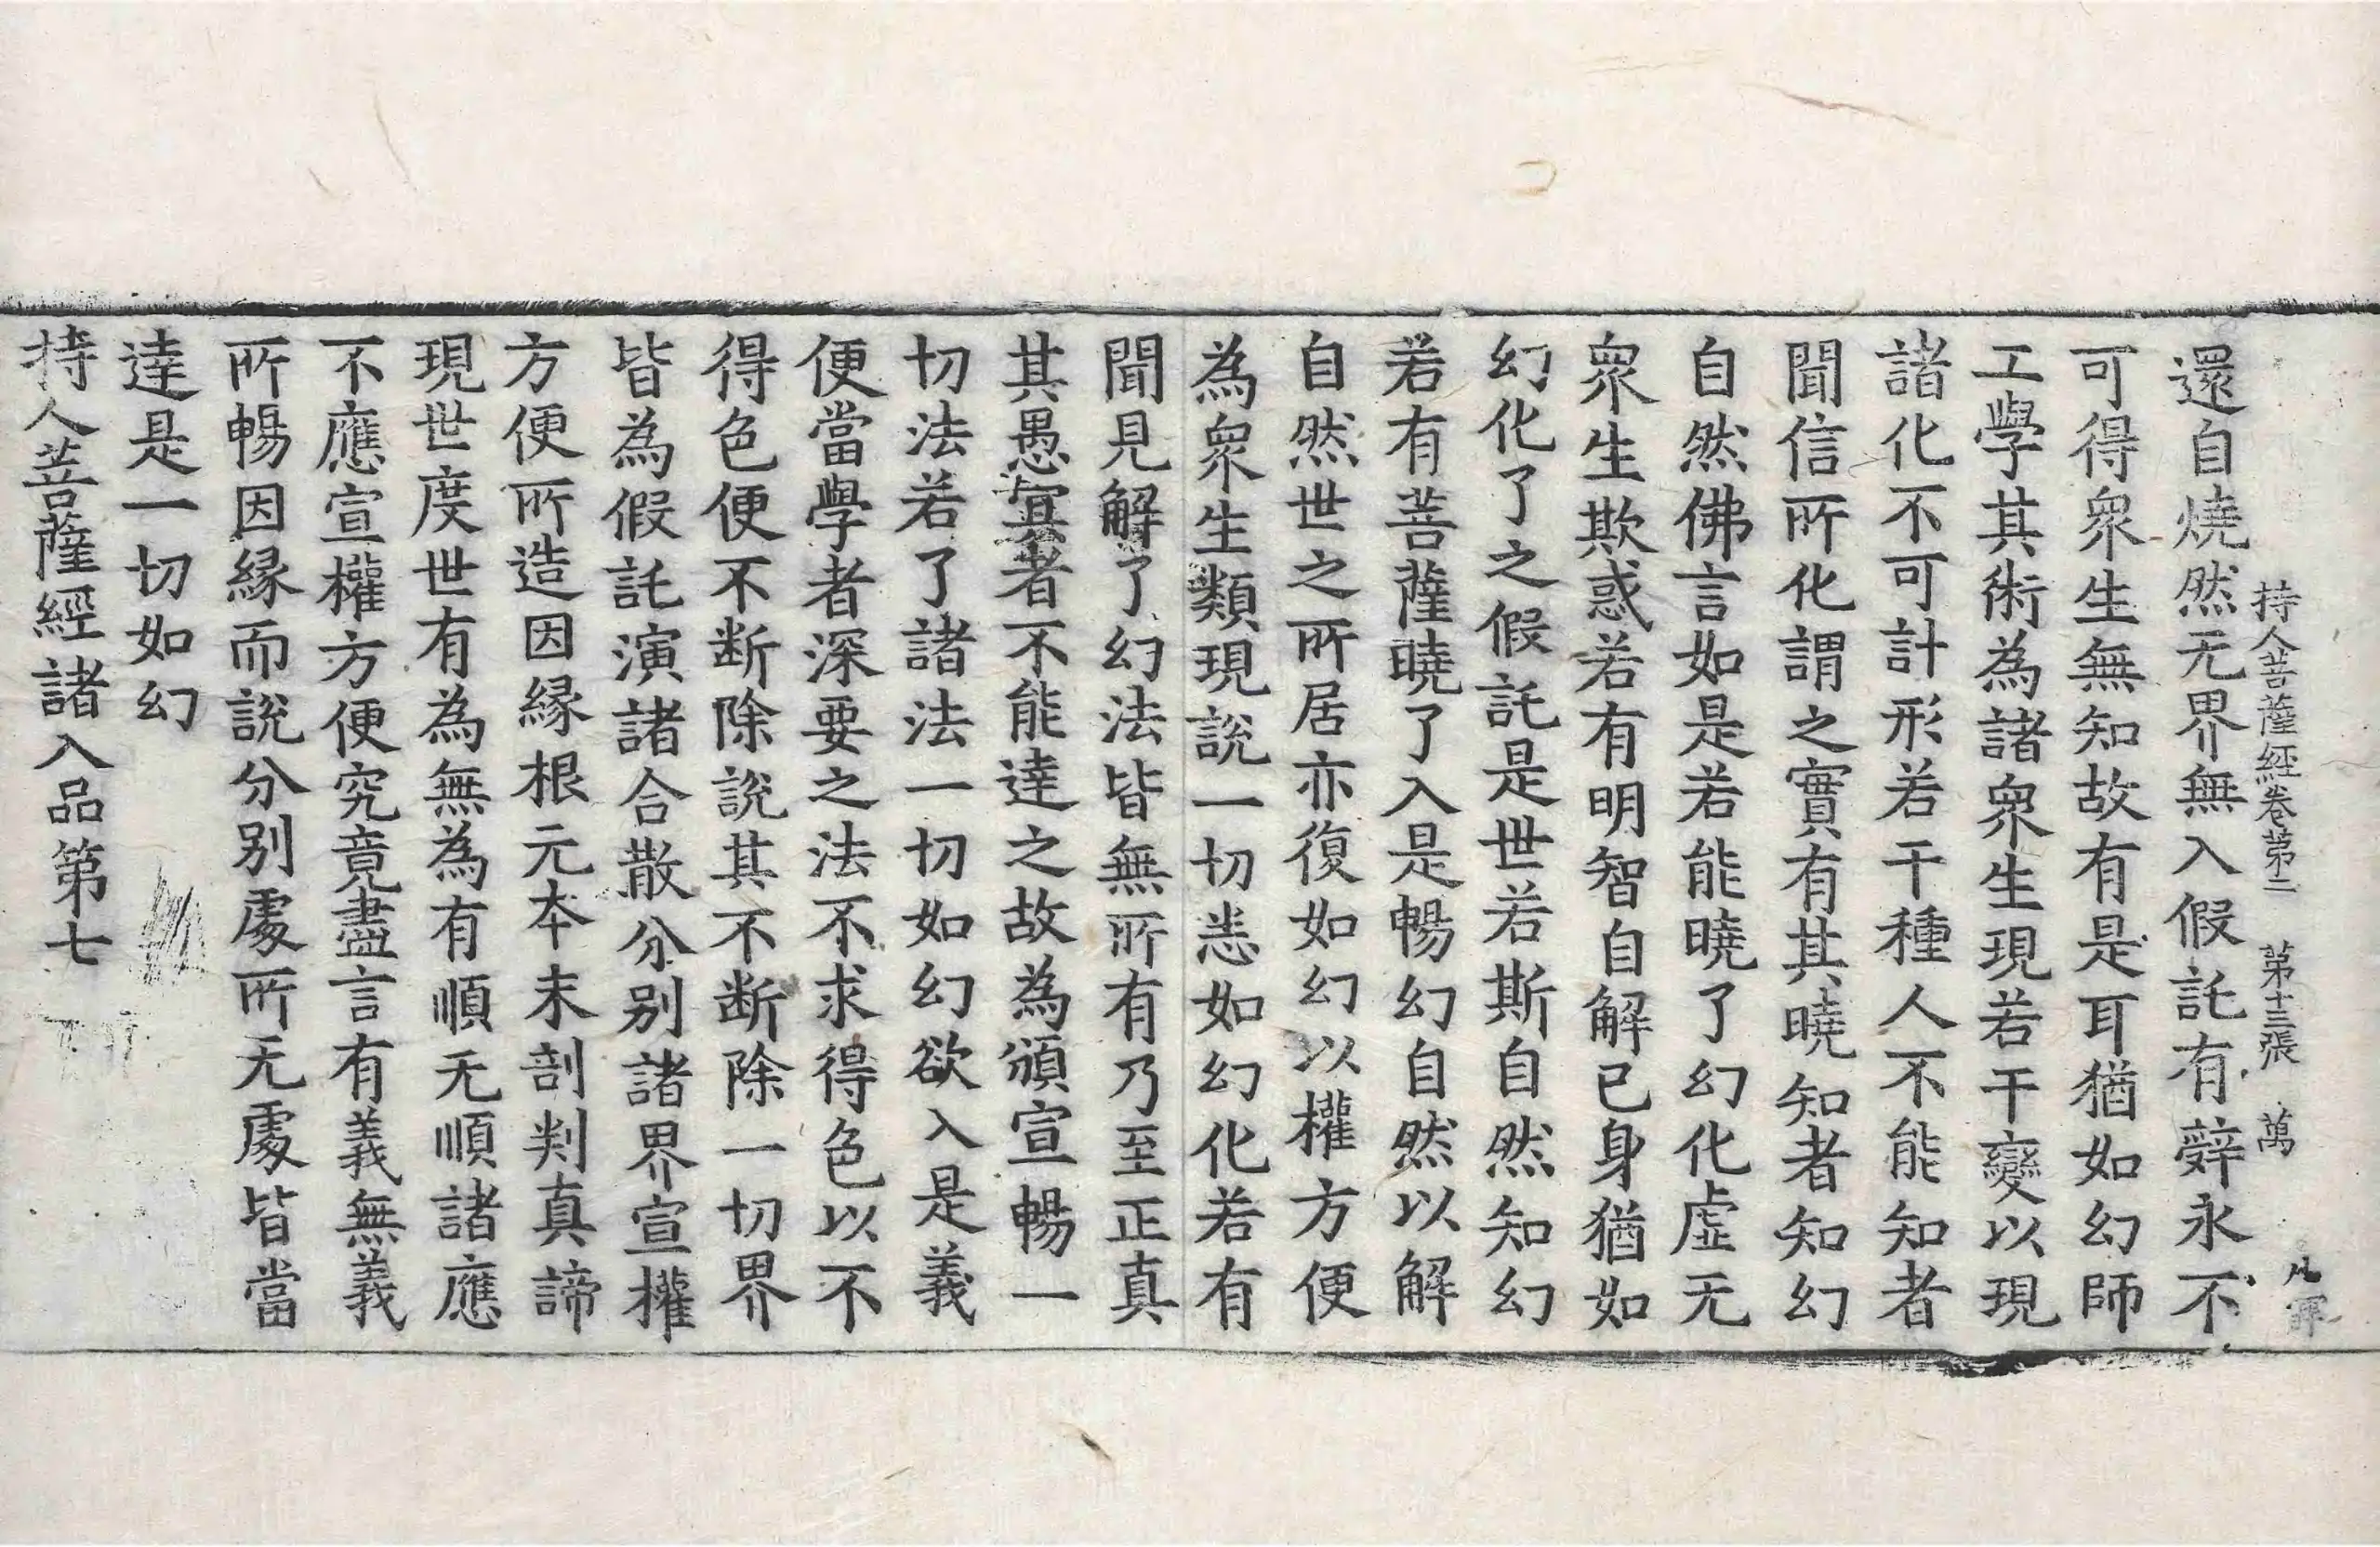 持人菩薩經卷第二　第十三張　萬
還自燒然无界無入假託有辤永不
可得衆生無知故有是耳猶如幻師
工學其術為諸衆生現若干變以現
諸化不可計形若干種人不能知者
聞信所化謂之實有其曉知者知幻
自然佛言如是若能曉了幻化虛无
衆生欺惑若有明智自解已身猶如
幻化了之假託是世若斯自然知幻
若有菩薩曉了入是暢幻自然以解
自然世之所居亦復如幻以權方便
為衆生類現說一切恙如幻化若有
聞見解了幻法皆無所有乃至正真
其愚冥者不能達之故為頒宣暢一
切法若了諸法一切如幻欲入是義
便當學者深要之法不求得色以不
得色便不断除說其不断除一切界
皆為假託演諸合散分別諸界宣權
方便所造因緣根元本末剖判真諦
現世度世有為無為有順无順諸應
不應宣權方便究竟盡言有義無義
所暢因緣而說分別處所无處皆當
達是一切如幻
持人菩薩經諸入品第七